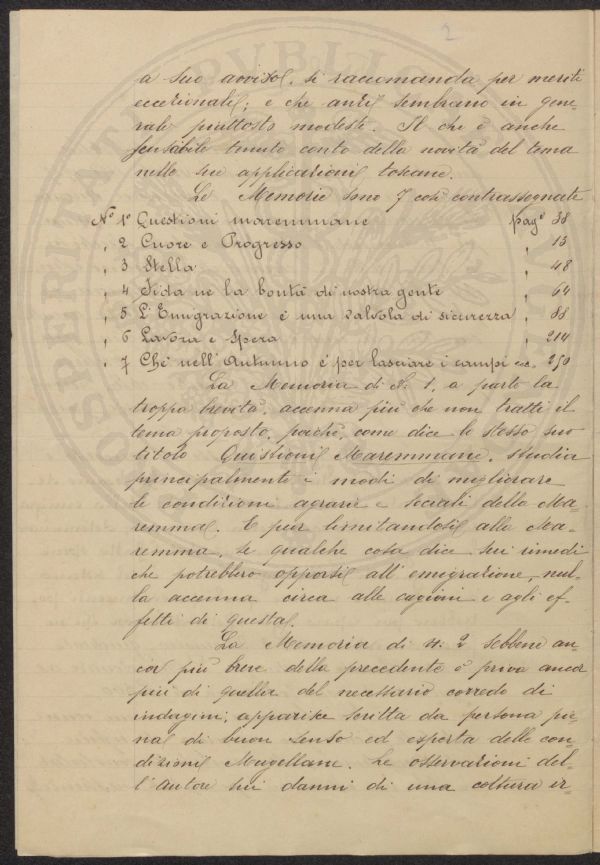 2
a suo avviso, si raccomanda per meriti
eccezionali; e che anzi sembrano in gene-
rale piuttosto modesti. Il che è anche
scusabile tenuto conto della novità del tema
nelle sue applicazioni toscane.
Le Memorie sono 7 così contrassegnate
No 1o Questioni maremmane page 38
" 2 Cuore e Progresso " 13
" 3 Stella " 48
" 4 Fida ne la bontà di nostra gente " 64
" 5 L'Emigrazione è una valvola di sicurezza " 88
" 6 Lavora e Spera " 214
" 7 Chè nell'Autunno è per lasciare i campi ec. " 250
La Memoria di No. 1, a parte la
troppa brevità, accenna più che non tratti il
tema proposto, poichè, come dice lo stesso suo
titolo Quistioni Maremmane, studia
principalmente i modi di migliorare
le condizioni agrarie e sociali della Ma-
remma. E pur limitandosi alla Ma-
remma, se qualche cosa dice sui rimedi
che potrebbero opporsi all'emigrazione, nul-
la accenna circa alle cagioni e agli ef-
fetti di questa.
La Memoria di N: 2 sebbene an-
cor più breve della precedente e priva ancor
più di quella del necessario corredo di
indagini, apparisce scritta da persona pie-
na di buon senso ed esperta delle con-
dizioni Mugellane. Le osservazioni del-
l'autore sui danni di una coltura ir-